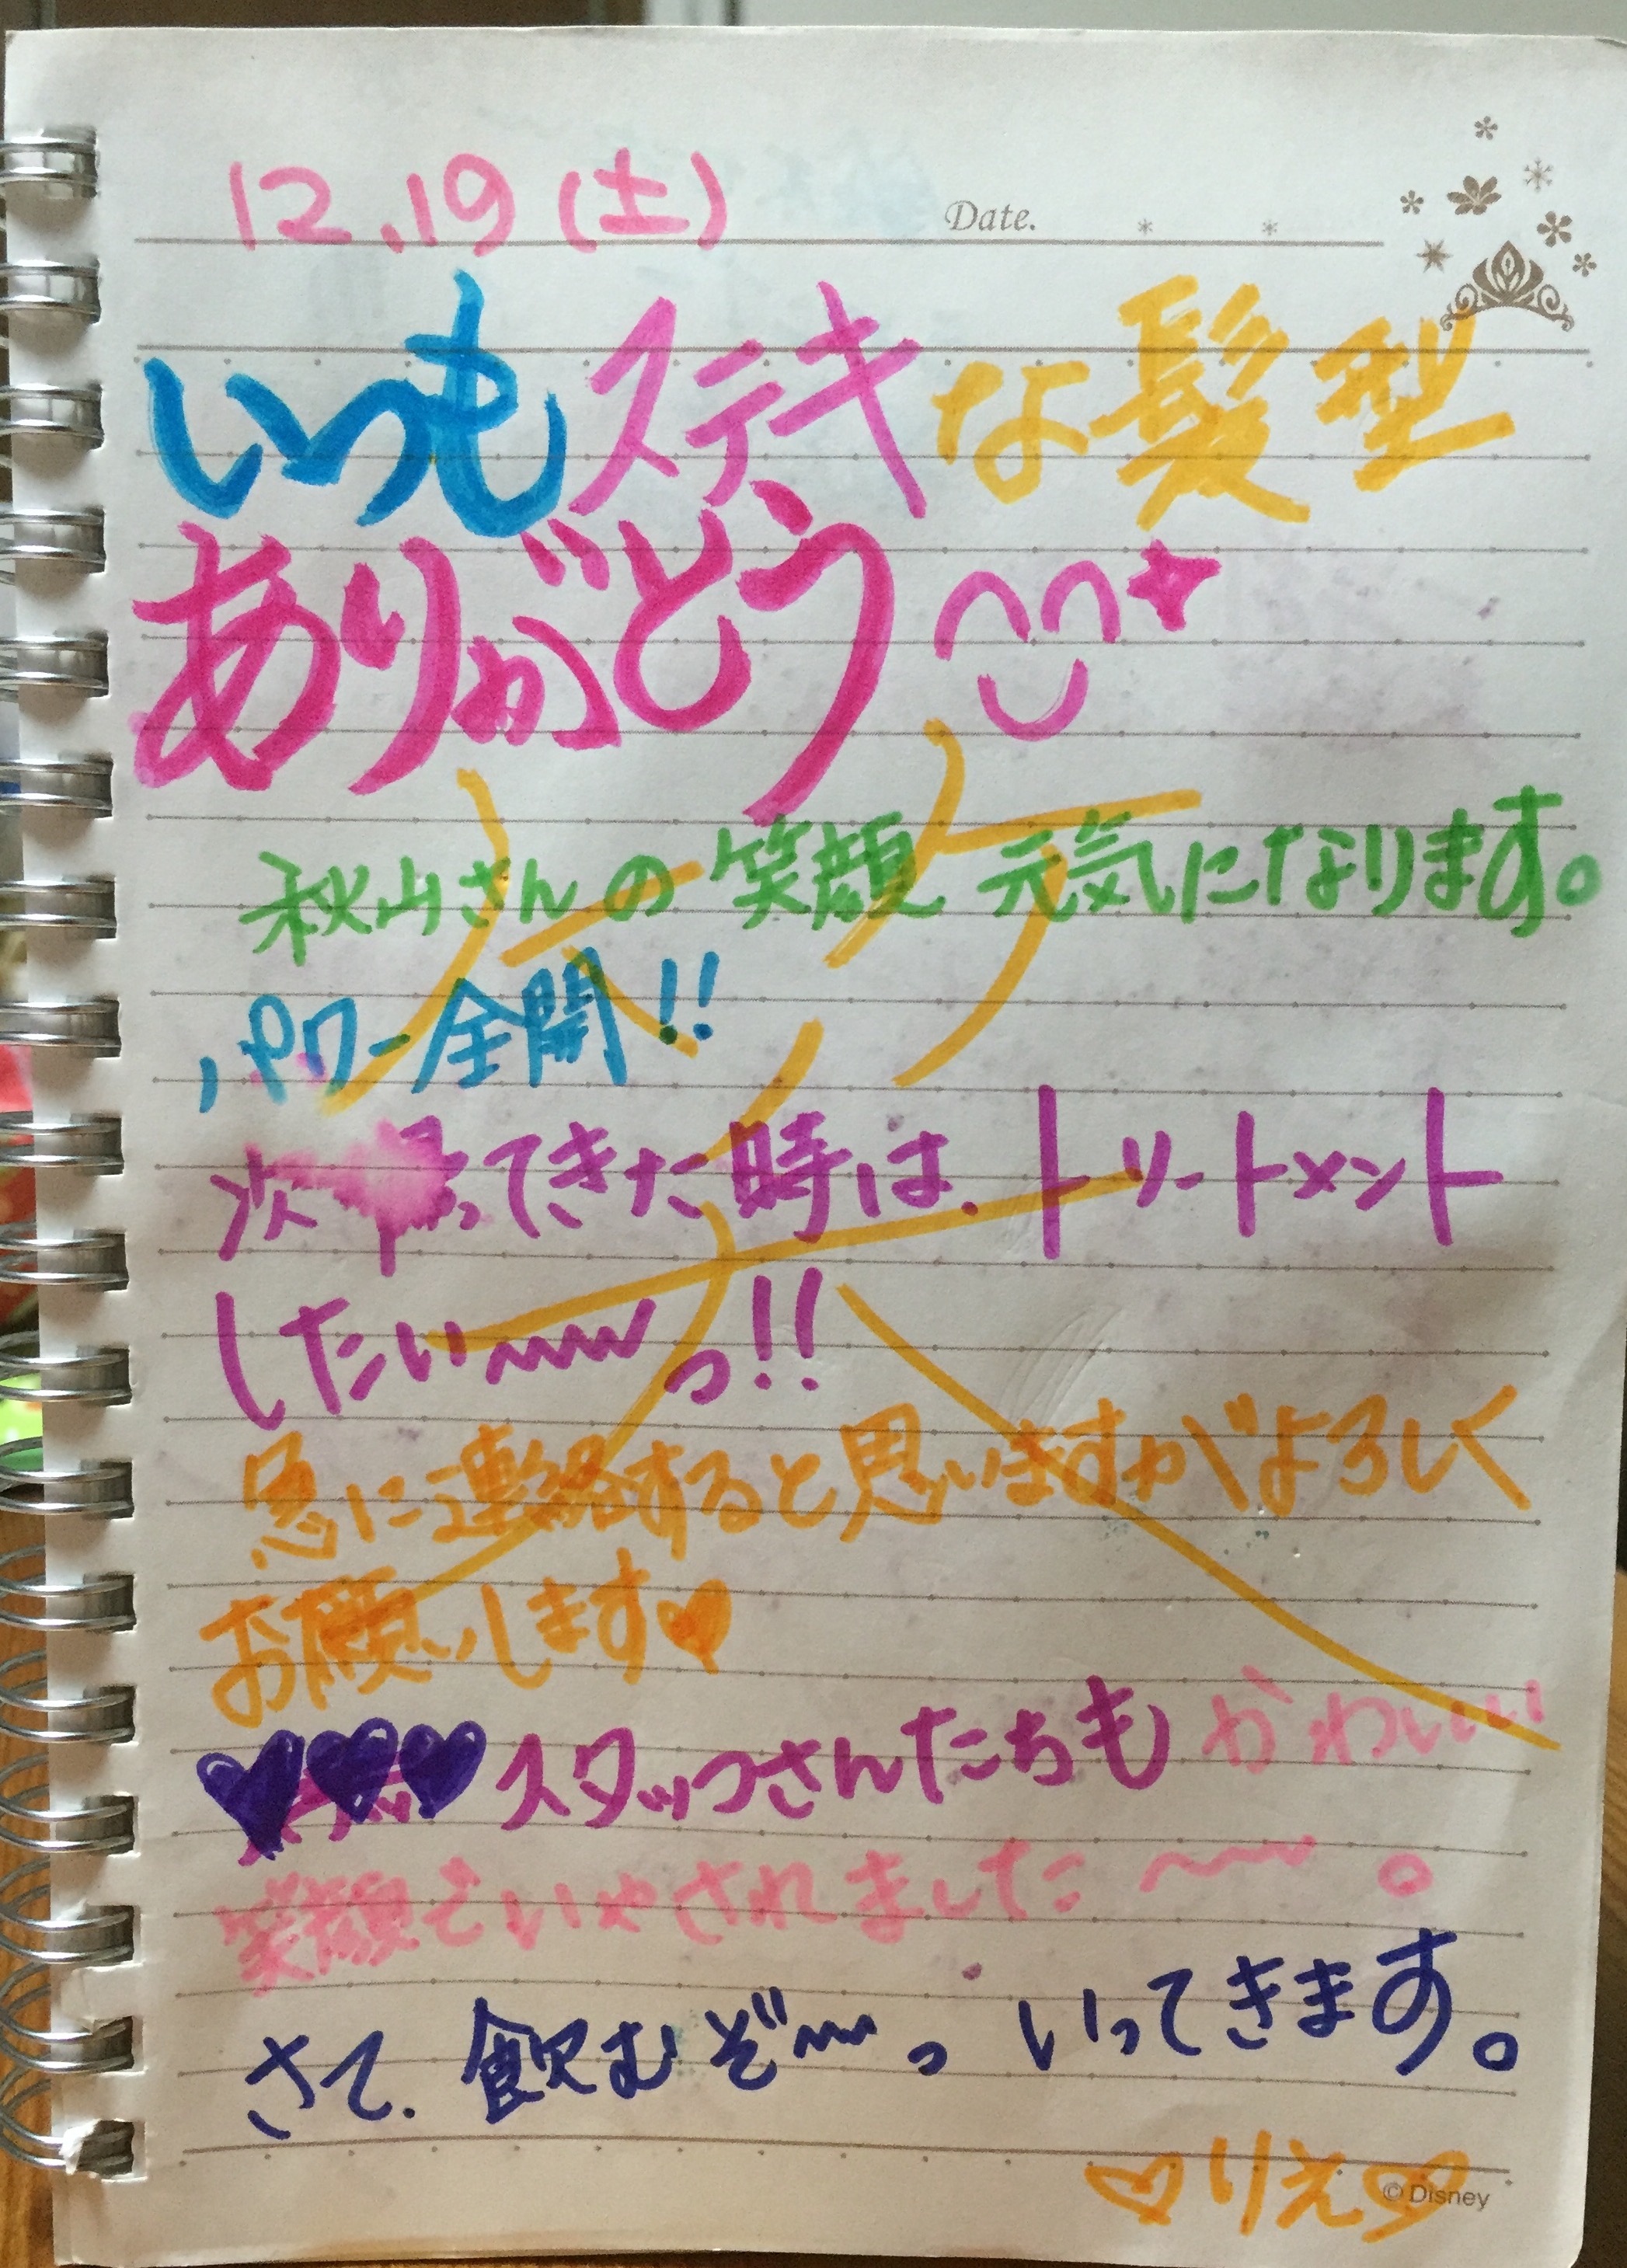 12.19(土)
Date.
いつもステキな髪型
ありがとう
秋山さんの笑顔 元気になります。
パワー全開!!
次帰ってきた時は、トリートメント
したい〜〜〜っ!!
急に連絡すると思いますがよろしく
お願いします♥
♥♥♥スタッフさんたちもかわいい
笑顔でいやされました〜〜。
さて、飲むぞ〜〜っ いってきます。
♡りえ♡
© Disney
スケ